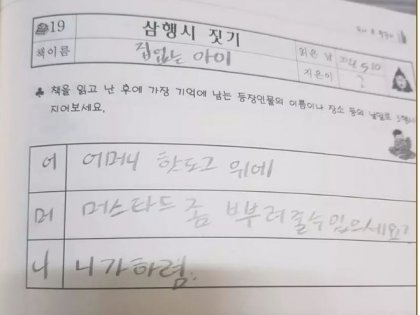 19 삼행시 짓기
책이름 집없는 아이 읽은 날
지은이 ?
♣ 책을 읽고 난 후에 가장 기억에 남는 등장인물의 이름이나 장소 등의 낱말로 삼행시
지어보세요.
어 어머니 핫도그 위에
머 머스타드 좀 뿌려줄수 있으세요?
니 니가하렴.